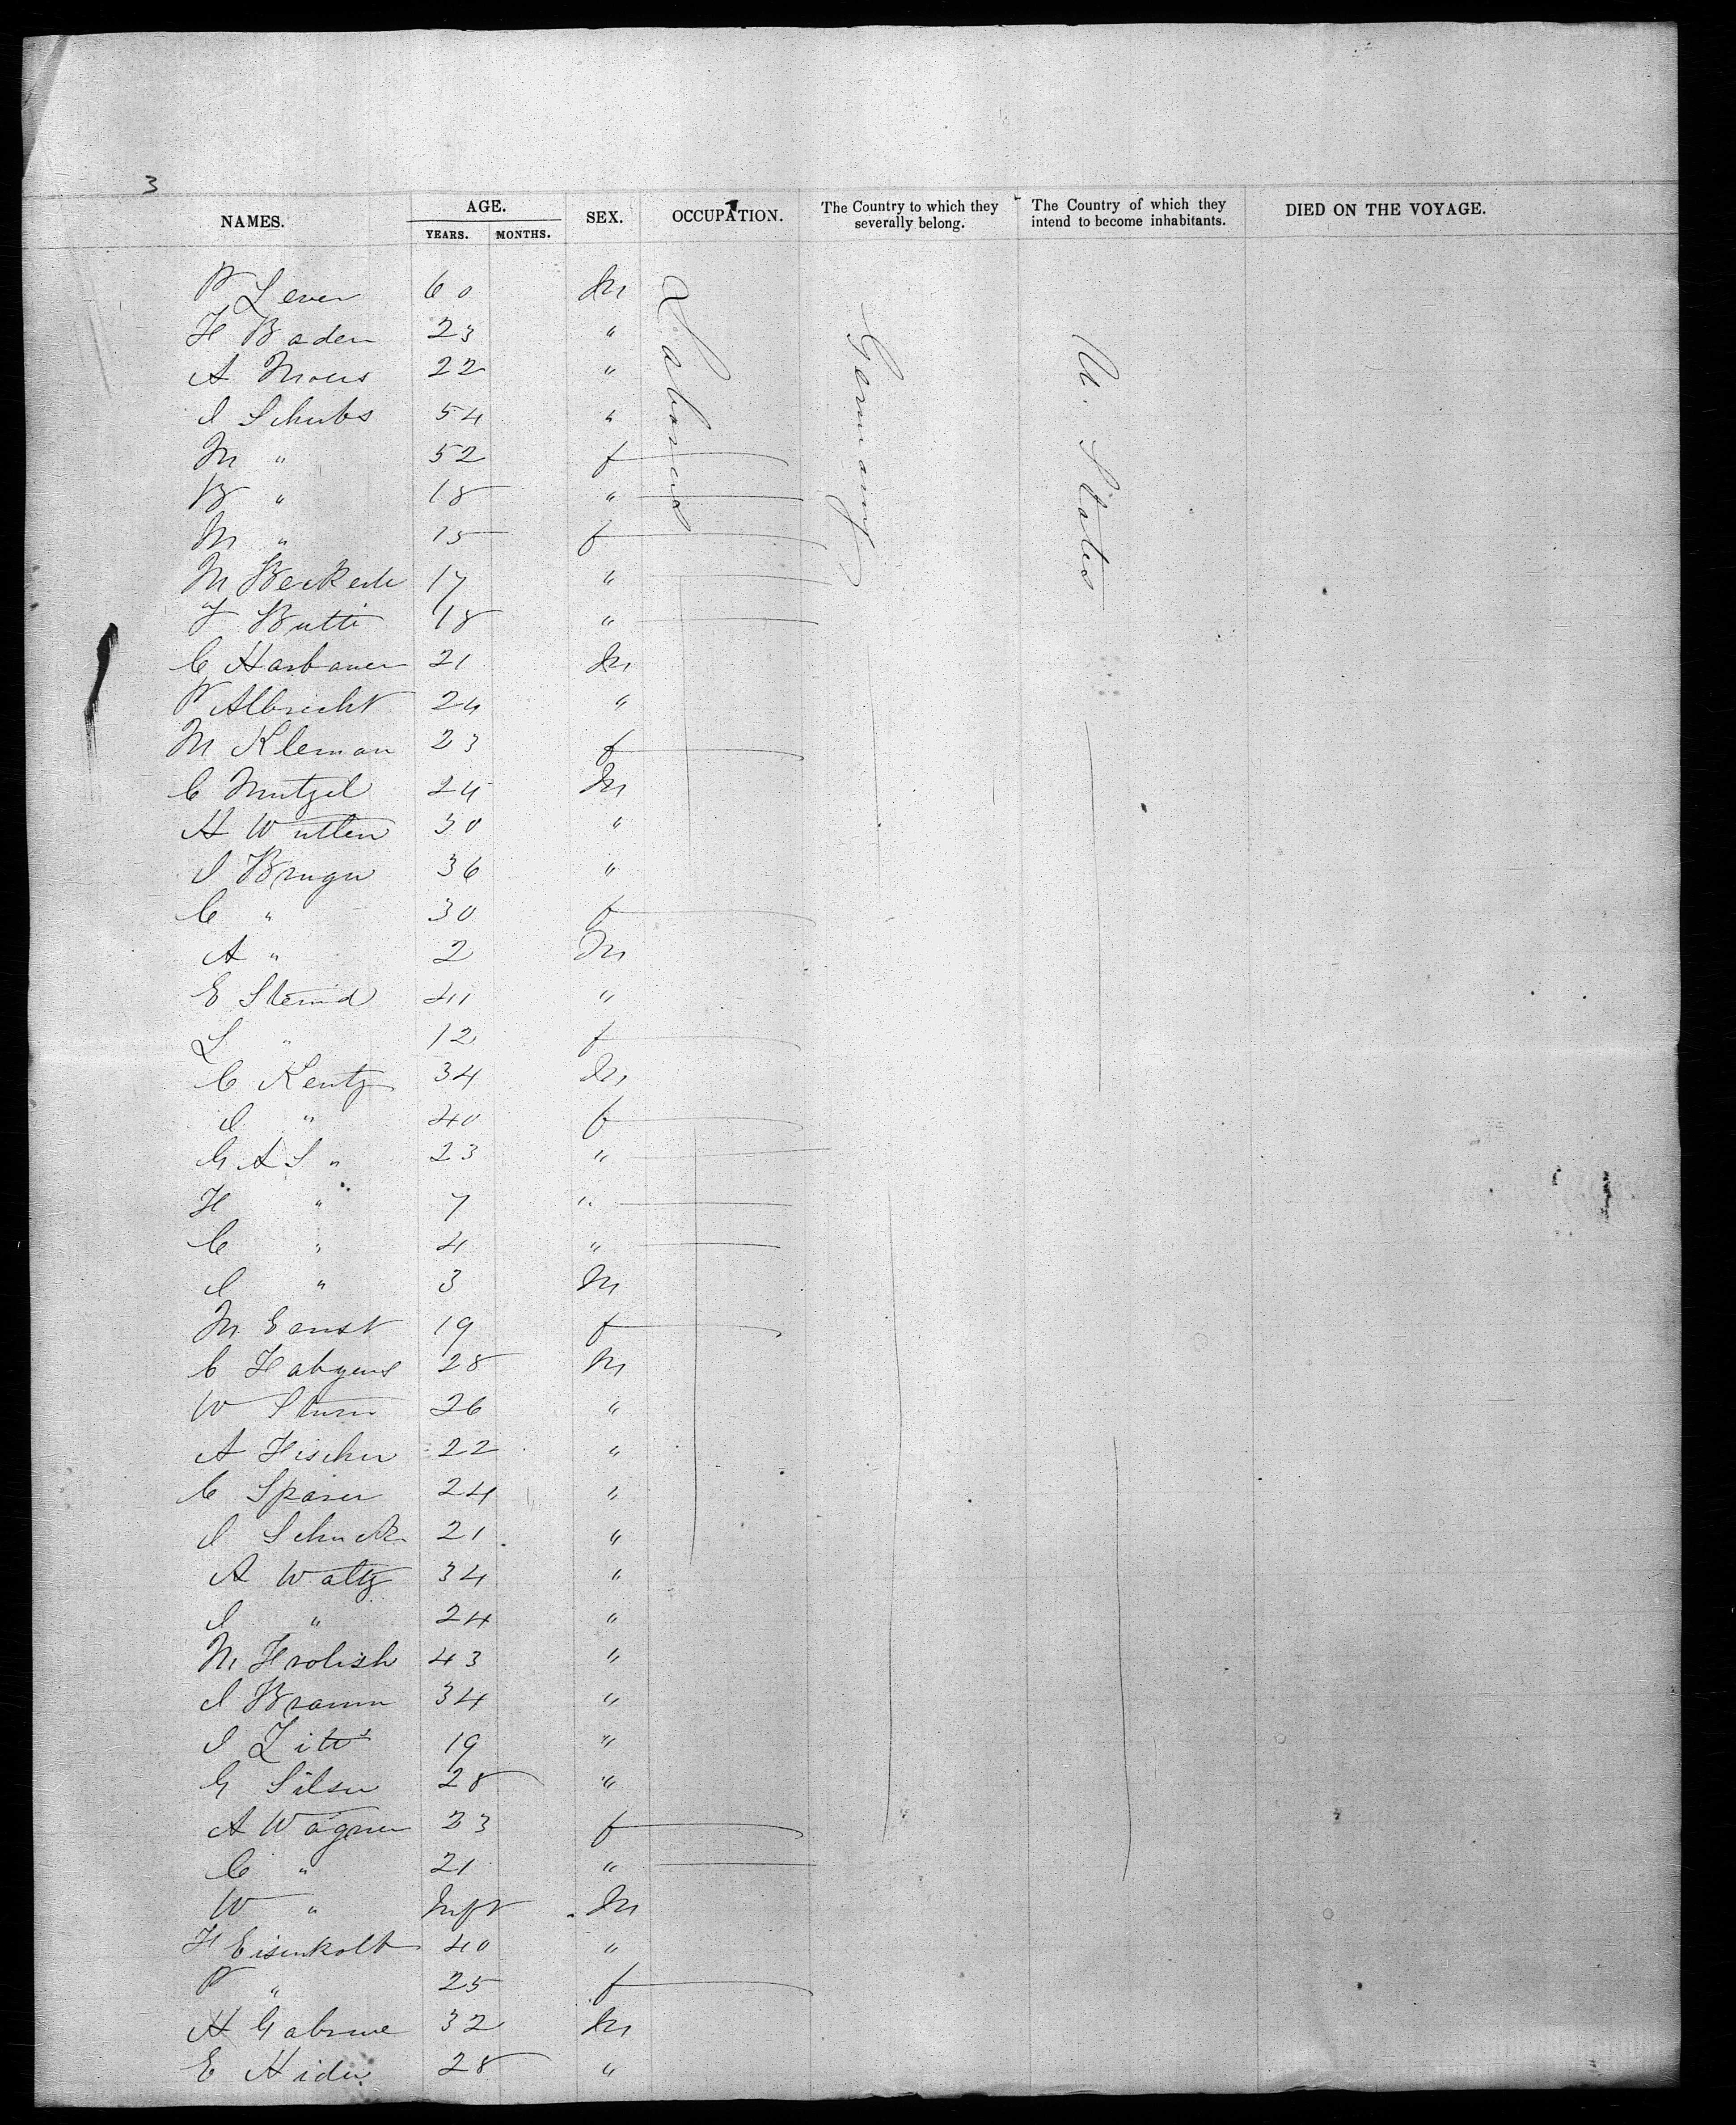 3
NAMES. AGE. SEX. OCCUPATION. The Country to which they severally belong. The Country of which they intend to become inhabitants. DIED ON THE VOYAGE.
YEARS. MONTHS.
Laborers Germany U. States
P Lever 60 M
H Baden 23 "
A 22 "
I Schubs 54 "
M " 52 f
B " 18 "
M " 15 f
M 17 "
F Butti 18 "
C Harbauer 21 M
P Albrecht 24 "
M Kleman 23 f
C Mutzel 24 M
H Wutten 30 "
I Bruger 36 "
C " 30 f
A " 2 M
E 41 "
L " 12 f
C Kentz 34 M
I " 40 f
G A S " 23 "
H " 7 "
C " 4 "
I " 3 M
M Ernst 19 f
C 28 M
W Sturm 26 "
A Fischer 22 "
C 24 "
I Schuck 21 "
A Waltz 34 "
I " 24 "
M Frolish 43 "
I Braun 34 "
I 19 "
G Silser 28 "
A Wagner 23 f
C " 21 "
W " Inft M
H Eisenkolb 40 "
P " 25 f
H 32 M
E Hider 28 "